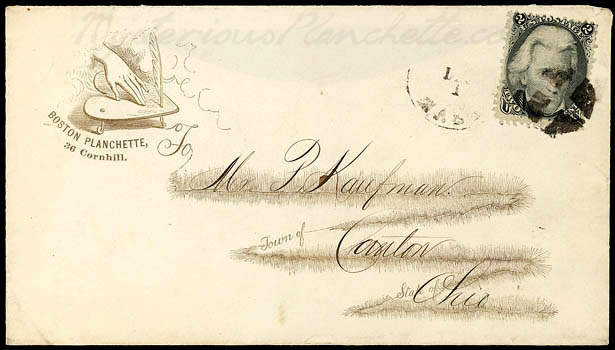 MysteriousPlanchette.co
2 2
BOSTON PLANCHETTE,
36 Cornhill.
To
Mr. P. Kaufman.
Town of
Canton
State of
Ohio